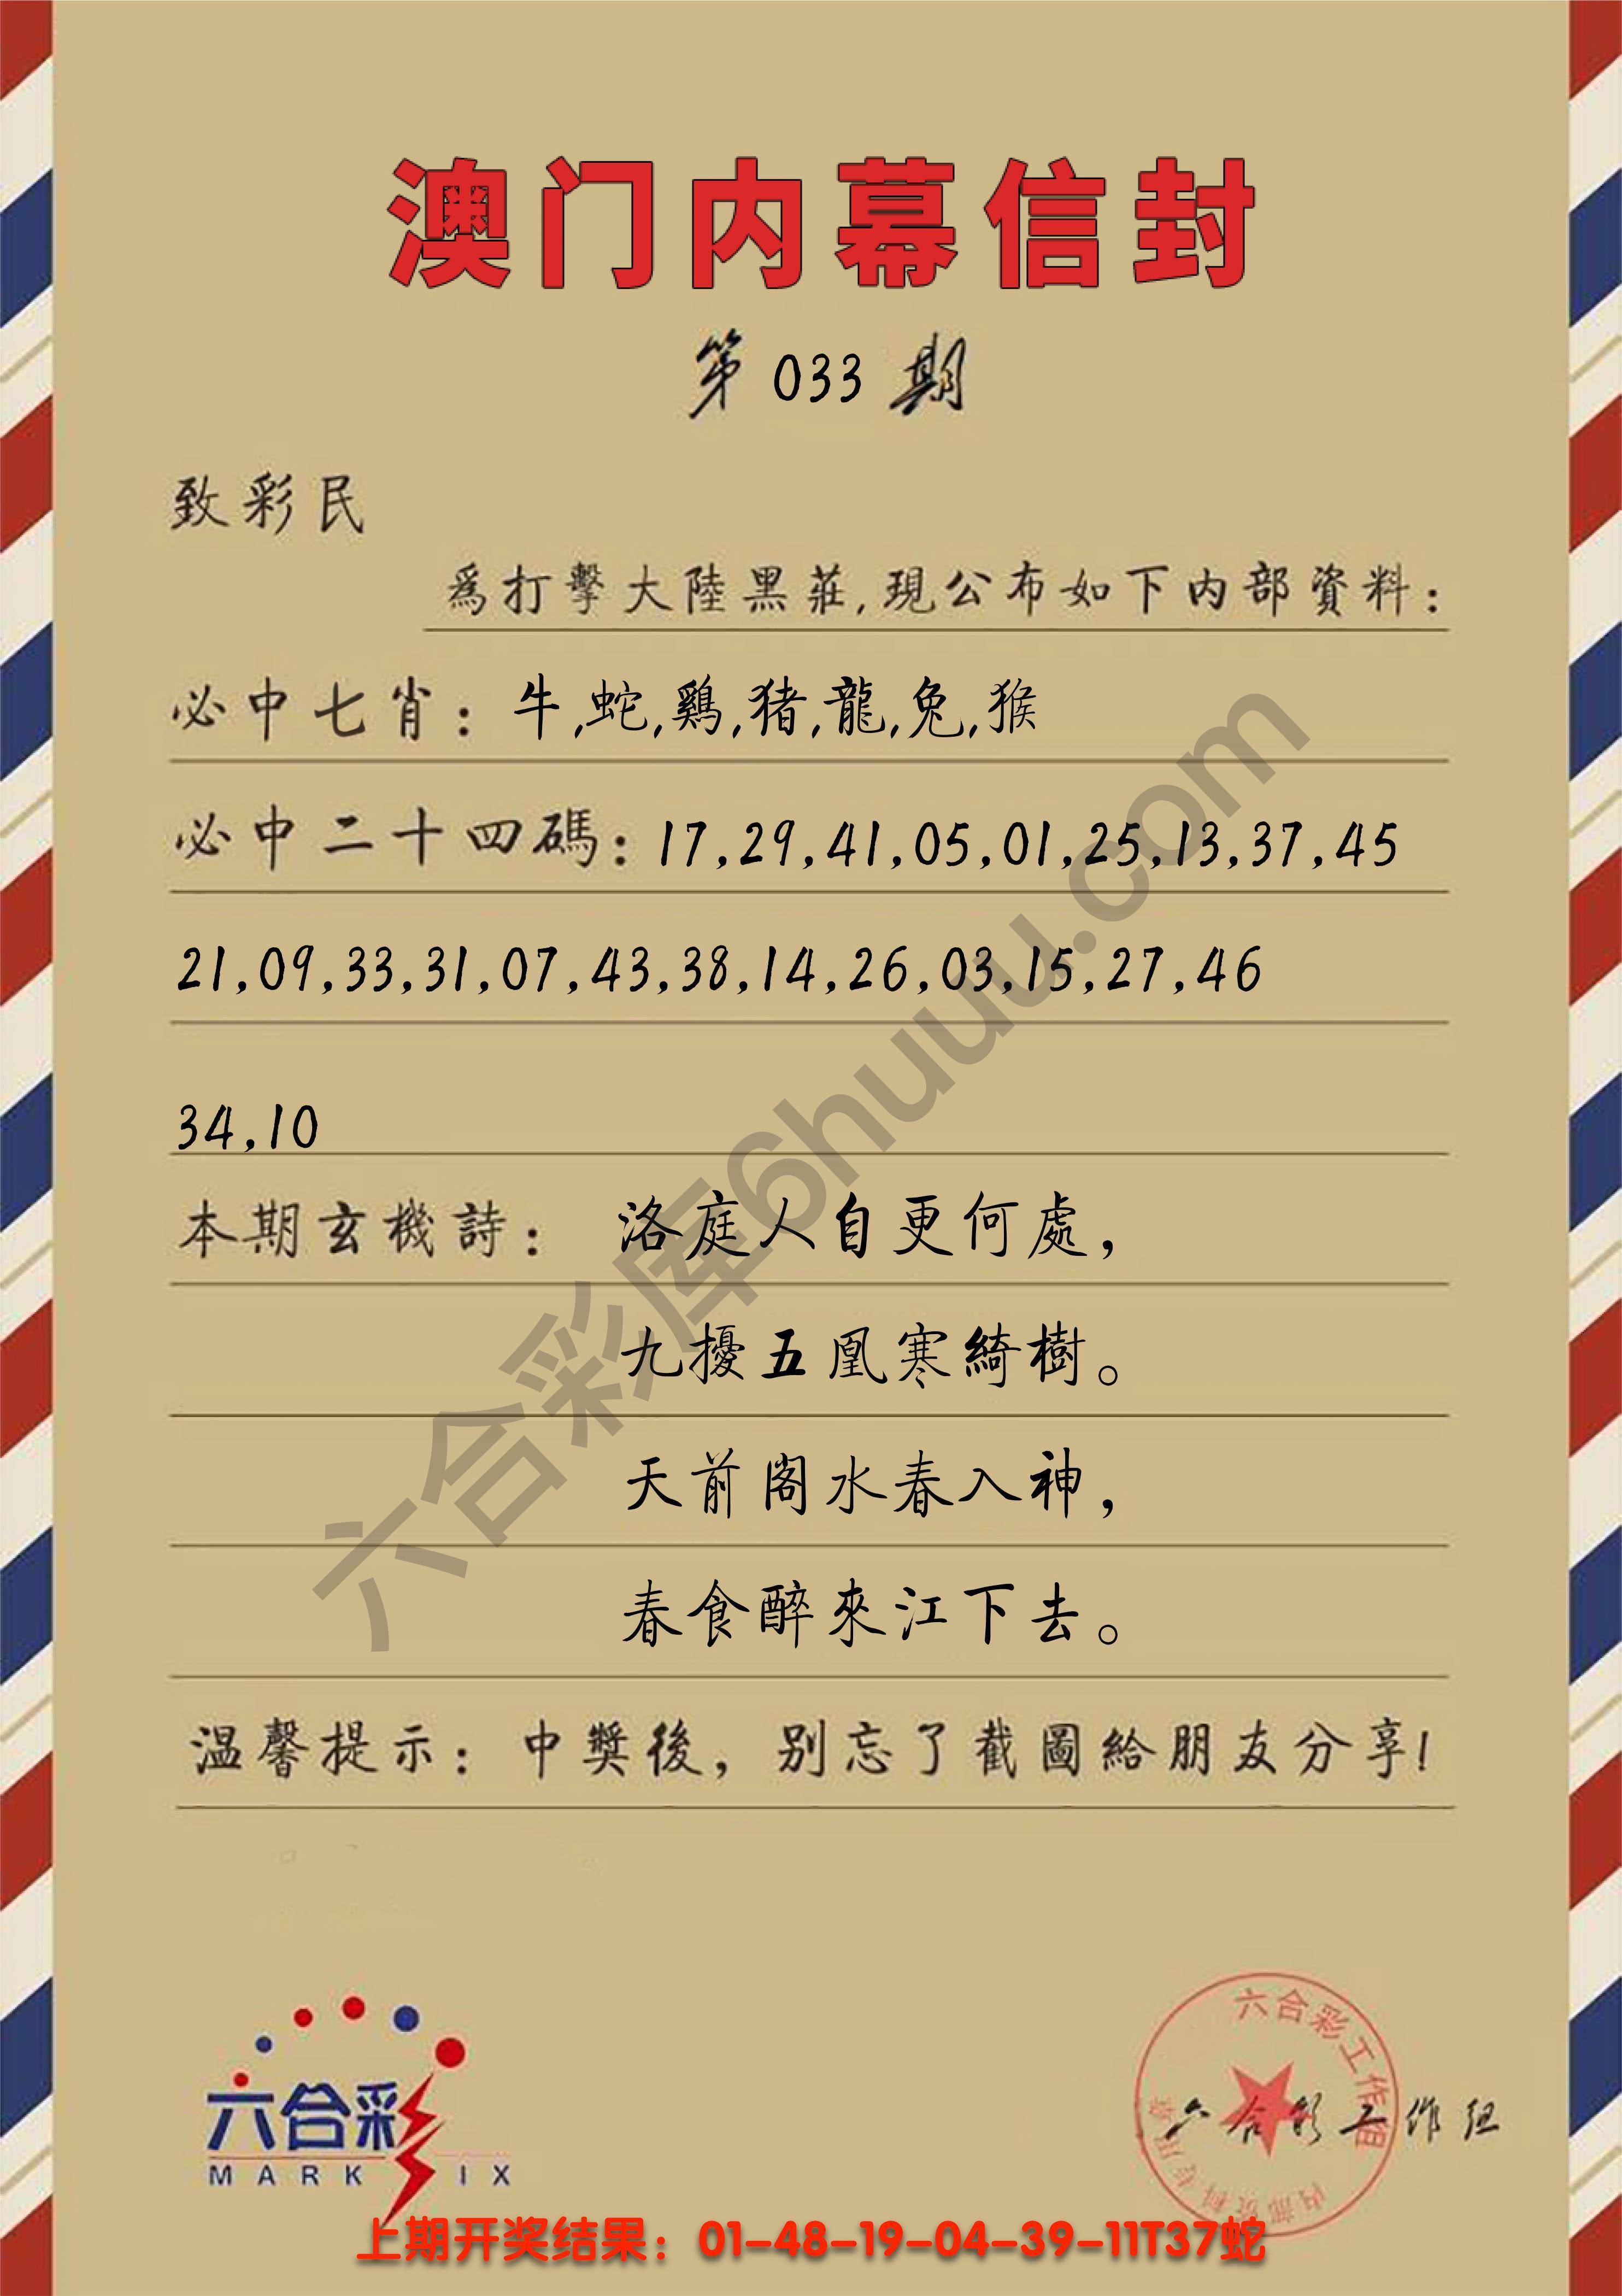 澳门内幕信封
第 033 期
致彩民
爲打擊大陸黑莊,現公布如下内部資料:
必中七肖: 牛,蛇,鷄,猪,龍,兔,猴
必中二十四碼: 17,29,41,05,01,25,13,37,45
21,09,33,31,07,43,38,14,26,03,15,27,46
34,10
本期玄機詩: 洛庭人自更何處,
九擾五凰寒綺樹。
天前閣水春入神,
春食醉來江下去。
温馨提示: 中獎後, 别忘了截圖給朋友分享!
六合彩库6huuu.com
六合彩
MARK IX
六合彩工作组
六合彩工作组
上期开奖结果: 01-48-19-04-39-11T37蛇